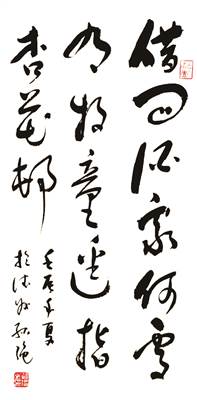 借问酒家何处
有牧童遥指
杏花邨
壬辰年夏
于